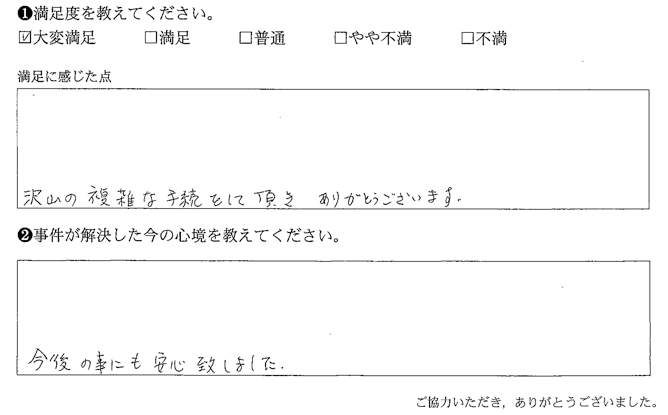 ❶満足度を教えてください。
☑大変満足 □満足 □普通 □やや不満 □不満
満足に感じた点
沢山の複雑な手続をして頂き ありがとうございます。
❷事件が解決した今の心境を教えてください。
今後の事にも安心致しました。
ご協力いただき，ありがとうございました。